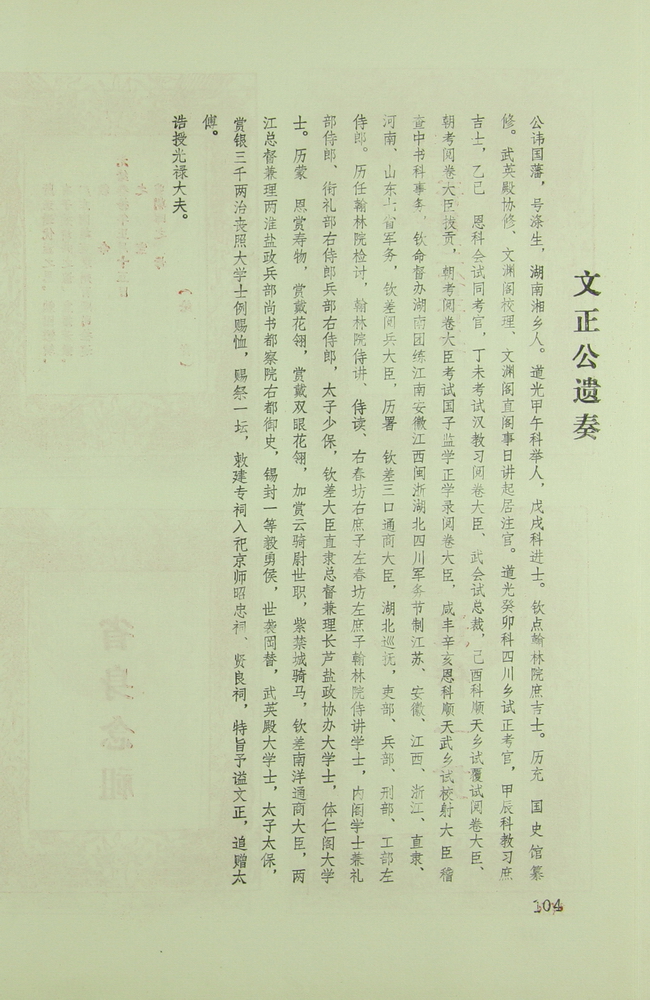 文正公遗奏
公讳国藩，号涤生，湖南湘乡人。道光甲午科举人，戊戌科进士。钦点翰林院庶吉士。历充 国史馆纂
修。武英殿协修、文渊阁校理、文渊阁直阁事日讲起居注官。道光癸卯科四川乡试正考官，甲辰科教习庶
吉士，乙已 恩科会试同考官，丁未考试汉教习阅卷大臣、武会试总裁，己酉科顺天乡试覆试阅卷大臣、
朝考阅卷大臣拔贡，朝考阅卷大臣考试国子监学正学录阅卷大臣，咸丰辛亥恩科顺天武乡试校射大臣稽
查中书科事务，钦命督办湖南团练江南安徽江西闽浙湖北四川军务节制江苏、安徽、江西、浙江、直隶、
河南、山东七省军务，钦差阅兵大臣，历署 钦差三口通商大臣，湖北巡抚，吏部、兵部、刑部、工部左
侍郎。历任翰林院检讨，翰林院侍讲、侍读、右春坊右庶子左春坊左庶子翰林院侍讲学士，内阁学士兼礼
部侍郎、衔礼部右侍郎兵部右侍郎，太子少保，钦差大臣直隶总督兼理长芦盐政协办大学士，体仁阁大学
士。历蒙 恩赏寿物，赏戴花翎，赏戴双眼花翎，加赏云骑尉世职，紫禁城骑马，钦差南洋通商大臣，两
江总督兼理两淮盐政兵部尚书都察院右都御史，锡封一等毅勇侯，世袭罔替，武英殿大学士，太子太保，
赏银三千两治丧照大学士例赐恤，赐祭一坛，敕建专祠入祀京师昭忠祠、贤良祠，特旨予谥文正，追赠太
傅。
诰授光禄大夫。
104